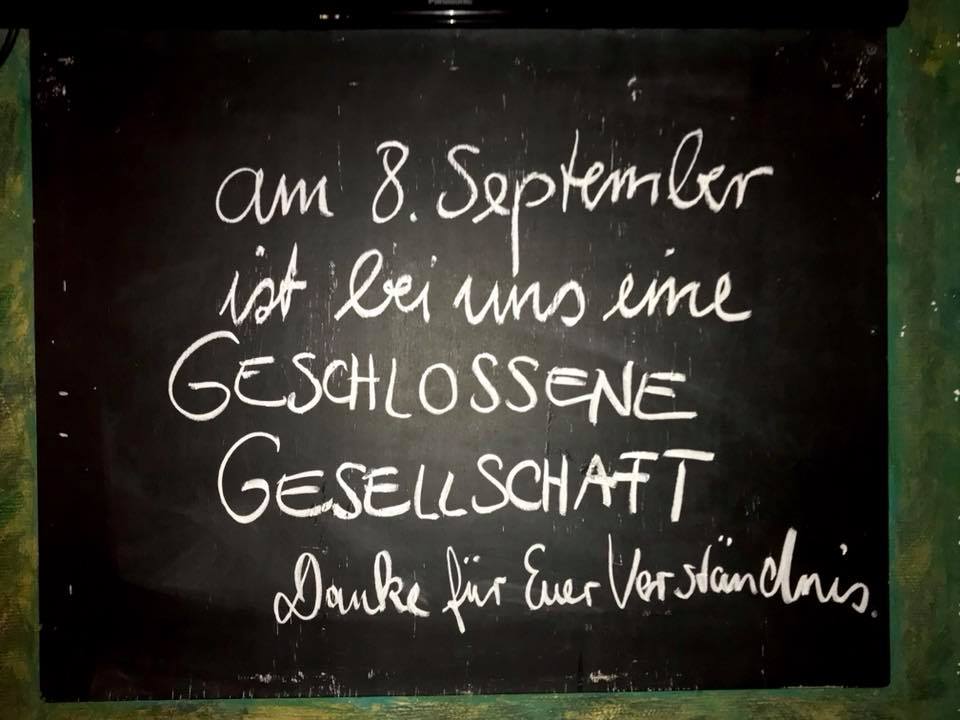 Panasonic
am 8. September
ist bei uns eine
GESCHLOSSENE
GESELLSCHAFT
Danke für Euer Verständnis.